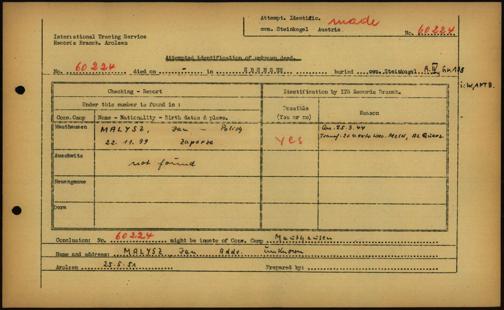 Attempt. Identific. made
cem. Steinkogel Austria No. 60224
International Tracing Service
Records Branch, Arolsen
Attempted identification of unknown dead.
No. 60224 died on " in EBENSEE buried cem. Steinkogel
Checking - Report
Identification by ITS Records Branch.
Under this number is found in:
Possible (Yes or no)
Reason
Conc. Camp
Name - Nationality - Birth dates & place.
Mauthausen MALYSZ, Jan - Polish
22.11.99
yes
Arr. 25.3.44
Auschwitz not found
Neuengamme
Dora
Conclusion: No. 60224 might be inmate of Conc. Camp Mauthausen
Name and address: MALYSZ Jan Addr. unknown
Arolsen 25.5.51 Prepared by: